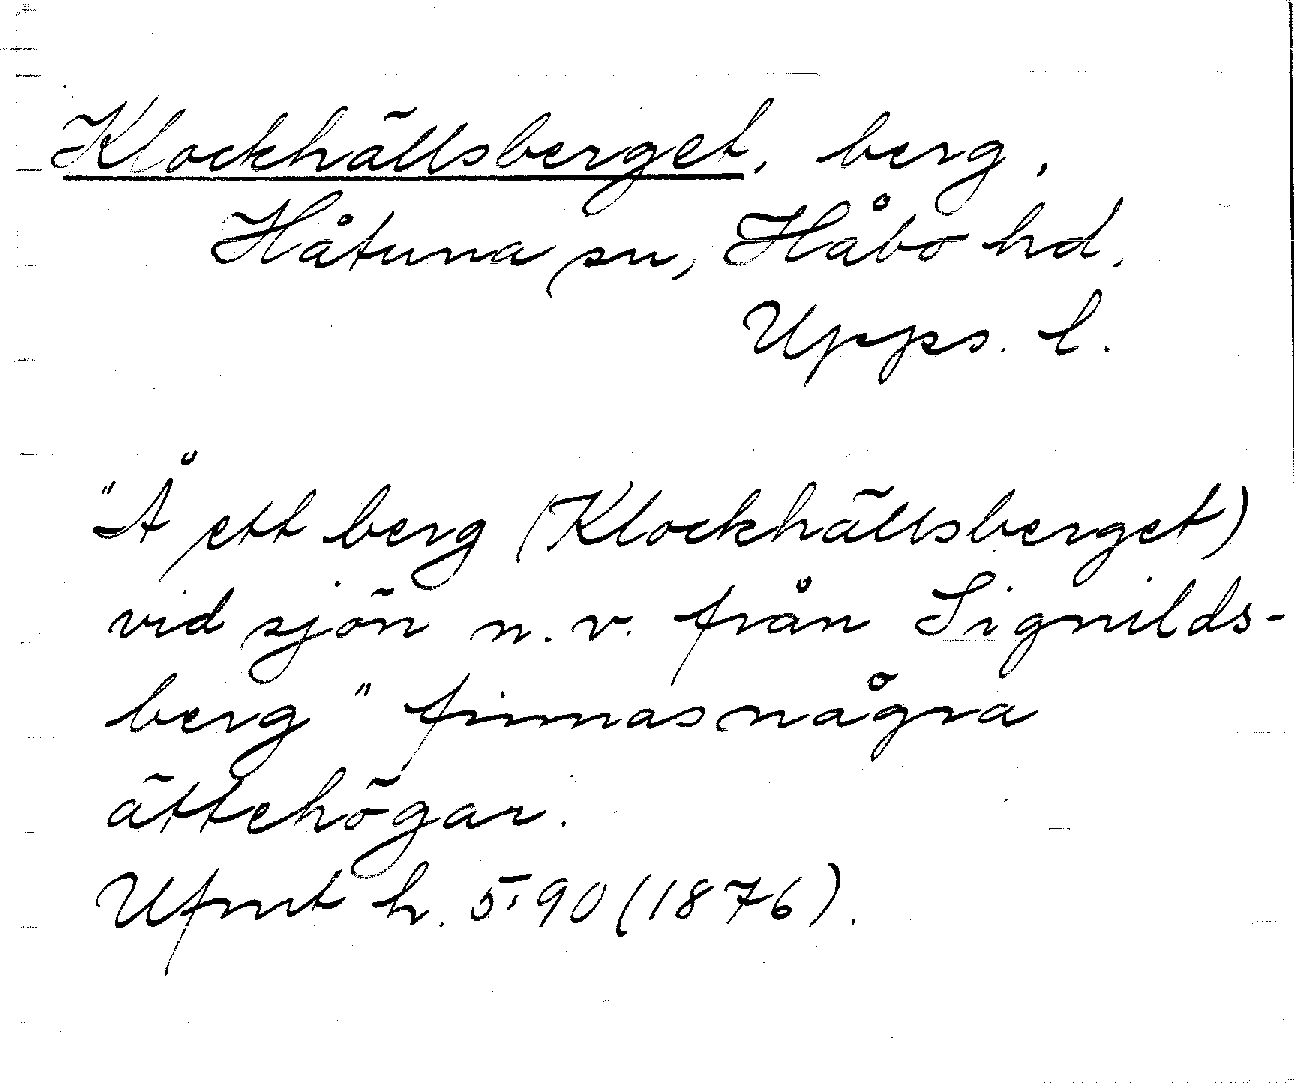 Klockhällsberget, berg,
Håtuna sn, Håbo hd,
Upps. l.
"Å ett berg (Klockhällsberget)
vid sjön n.v. från Signilds-
berg" finnas några
ättehögar.
Ufmt h. 5:90 (1876).